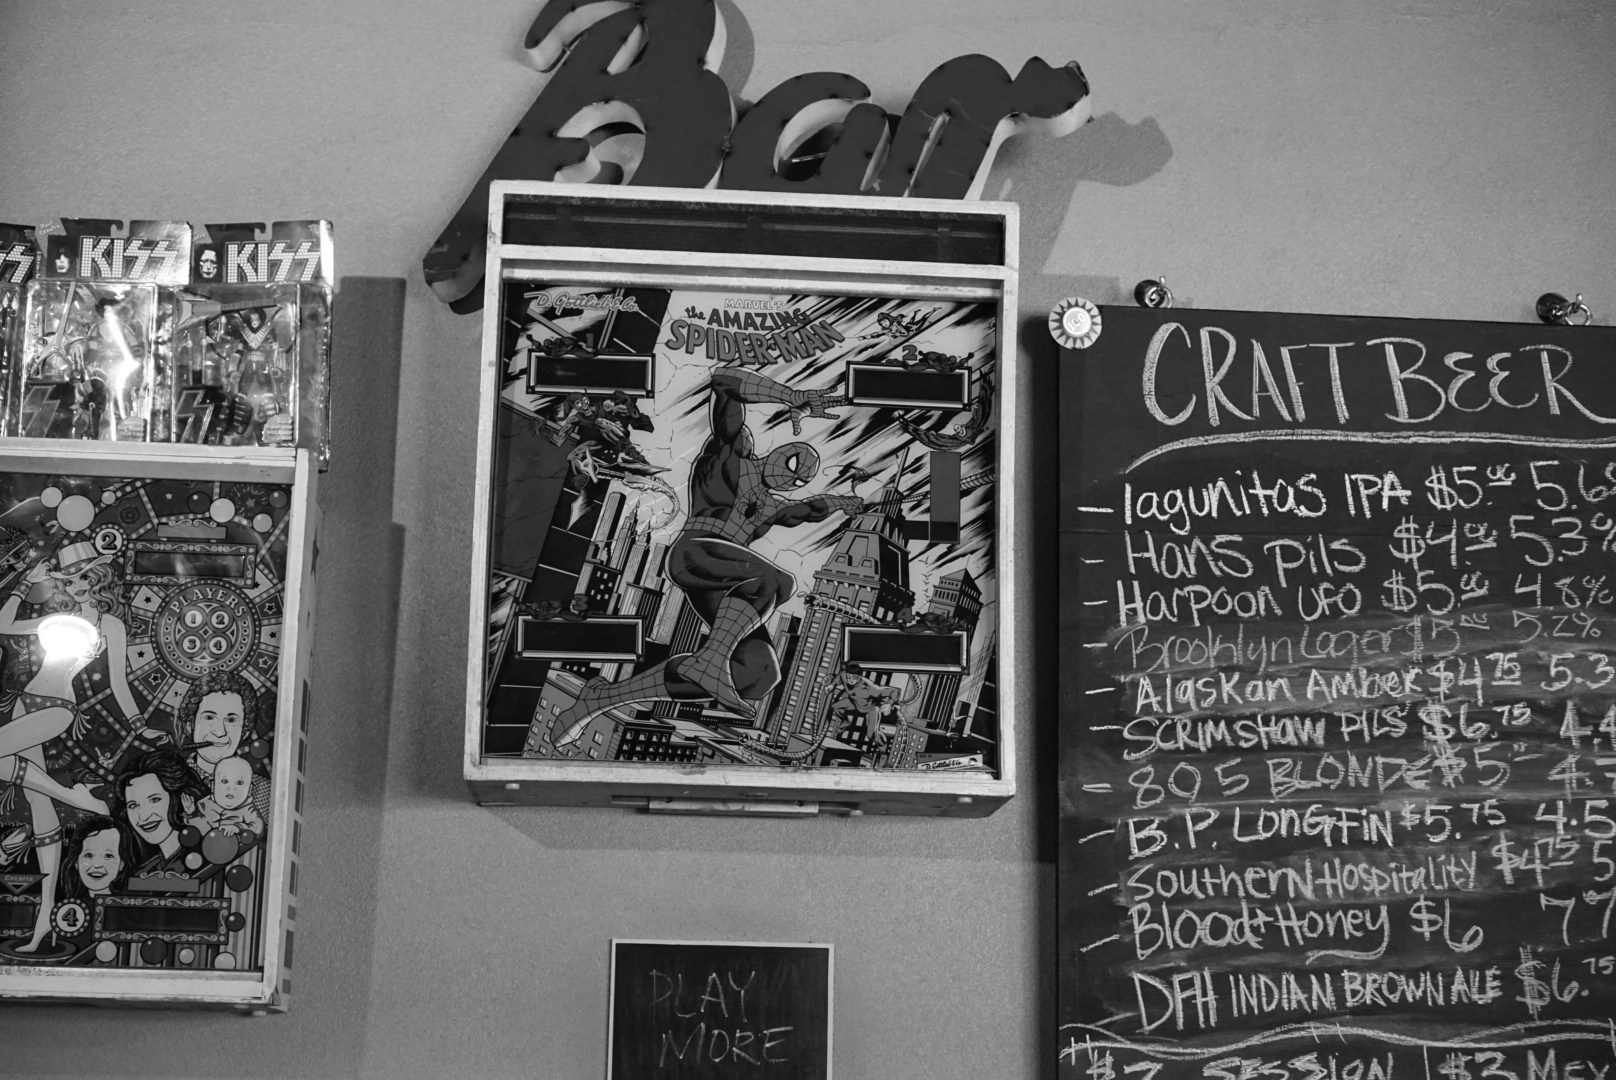 Bar
KISS
KISS
D. Gottlieb & Co.
MARVEL'S
the AMAZING
SPIDER-MAN
1
2
3
4
D. Gottlieb & Co.
2
PLAYERS
1 2
3 4
CREDITS
4
PLAY
MORE
CRAFT BEER
- lagunitas IPA $5.00 5.6
- Hans Pils $4.00 5.3%
- Harpoon UFO $5.00 4.8%
Brooklyn Lager $5.00 5.2%
- Alaskan Amber $4.75 5.3
- SCRIMSHAW PILS $6.75 4.4
- 805 BLONDE $5.00 4.7
- B.P. LONGFIN $5.75 4.5
- Southern Hospitality $4.75 5
- Blood + Honey $6 7
DFH INDIAN BROWN ALE $6.75
SESSION $3 MEX